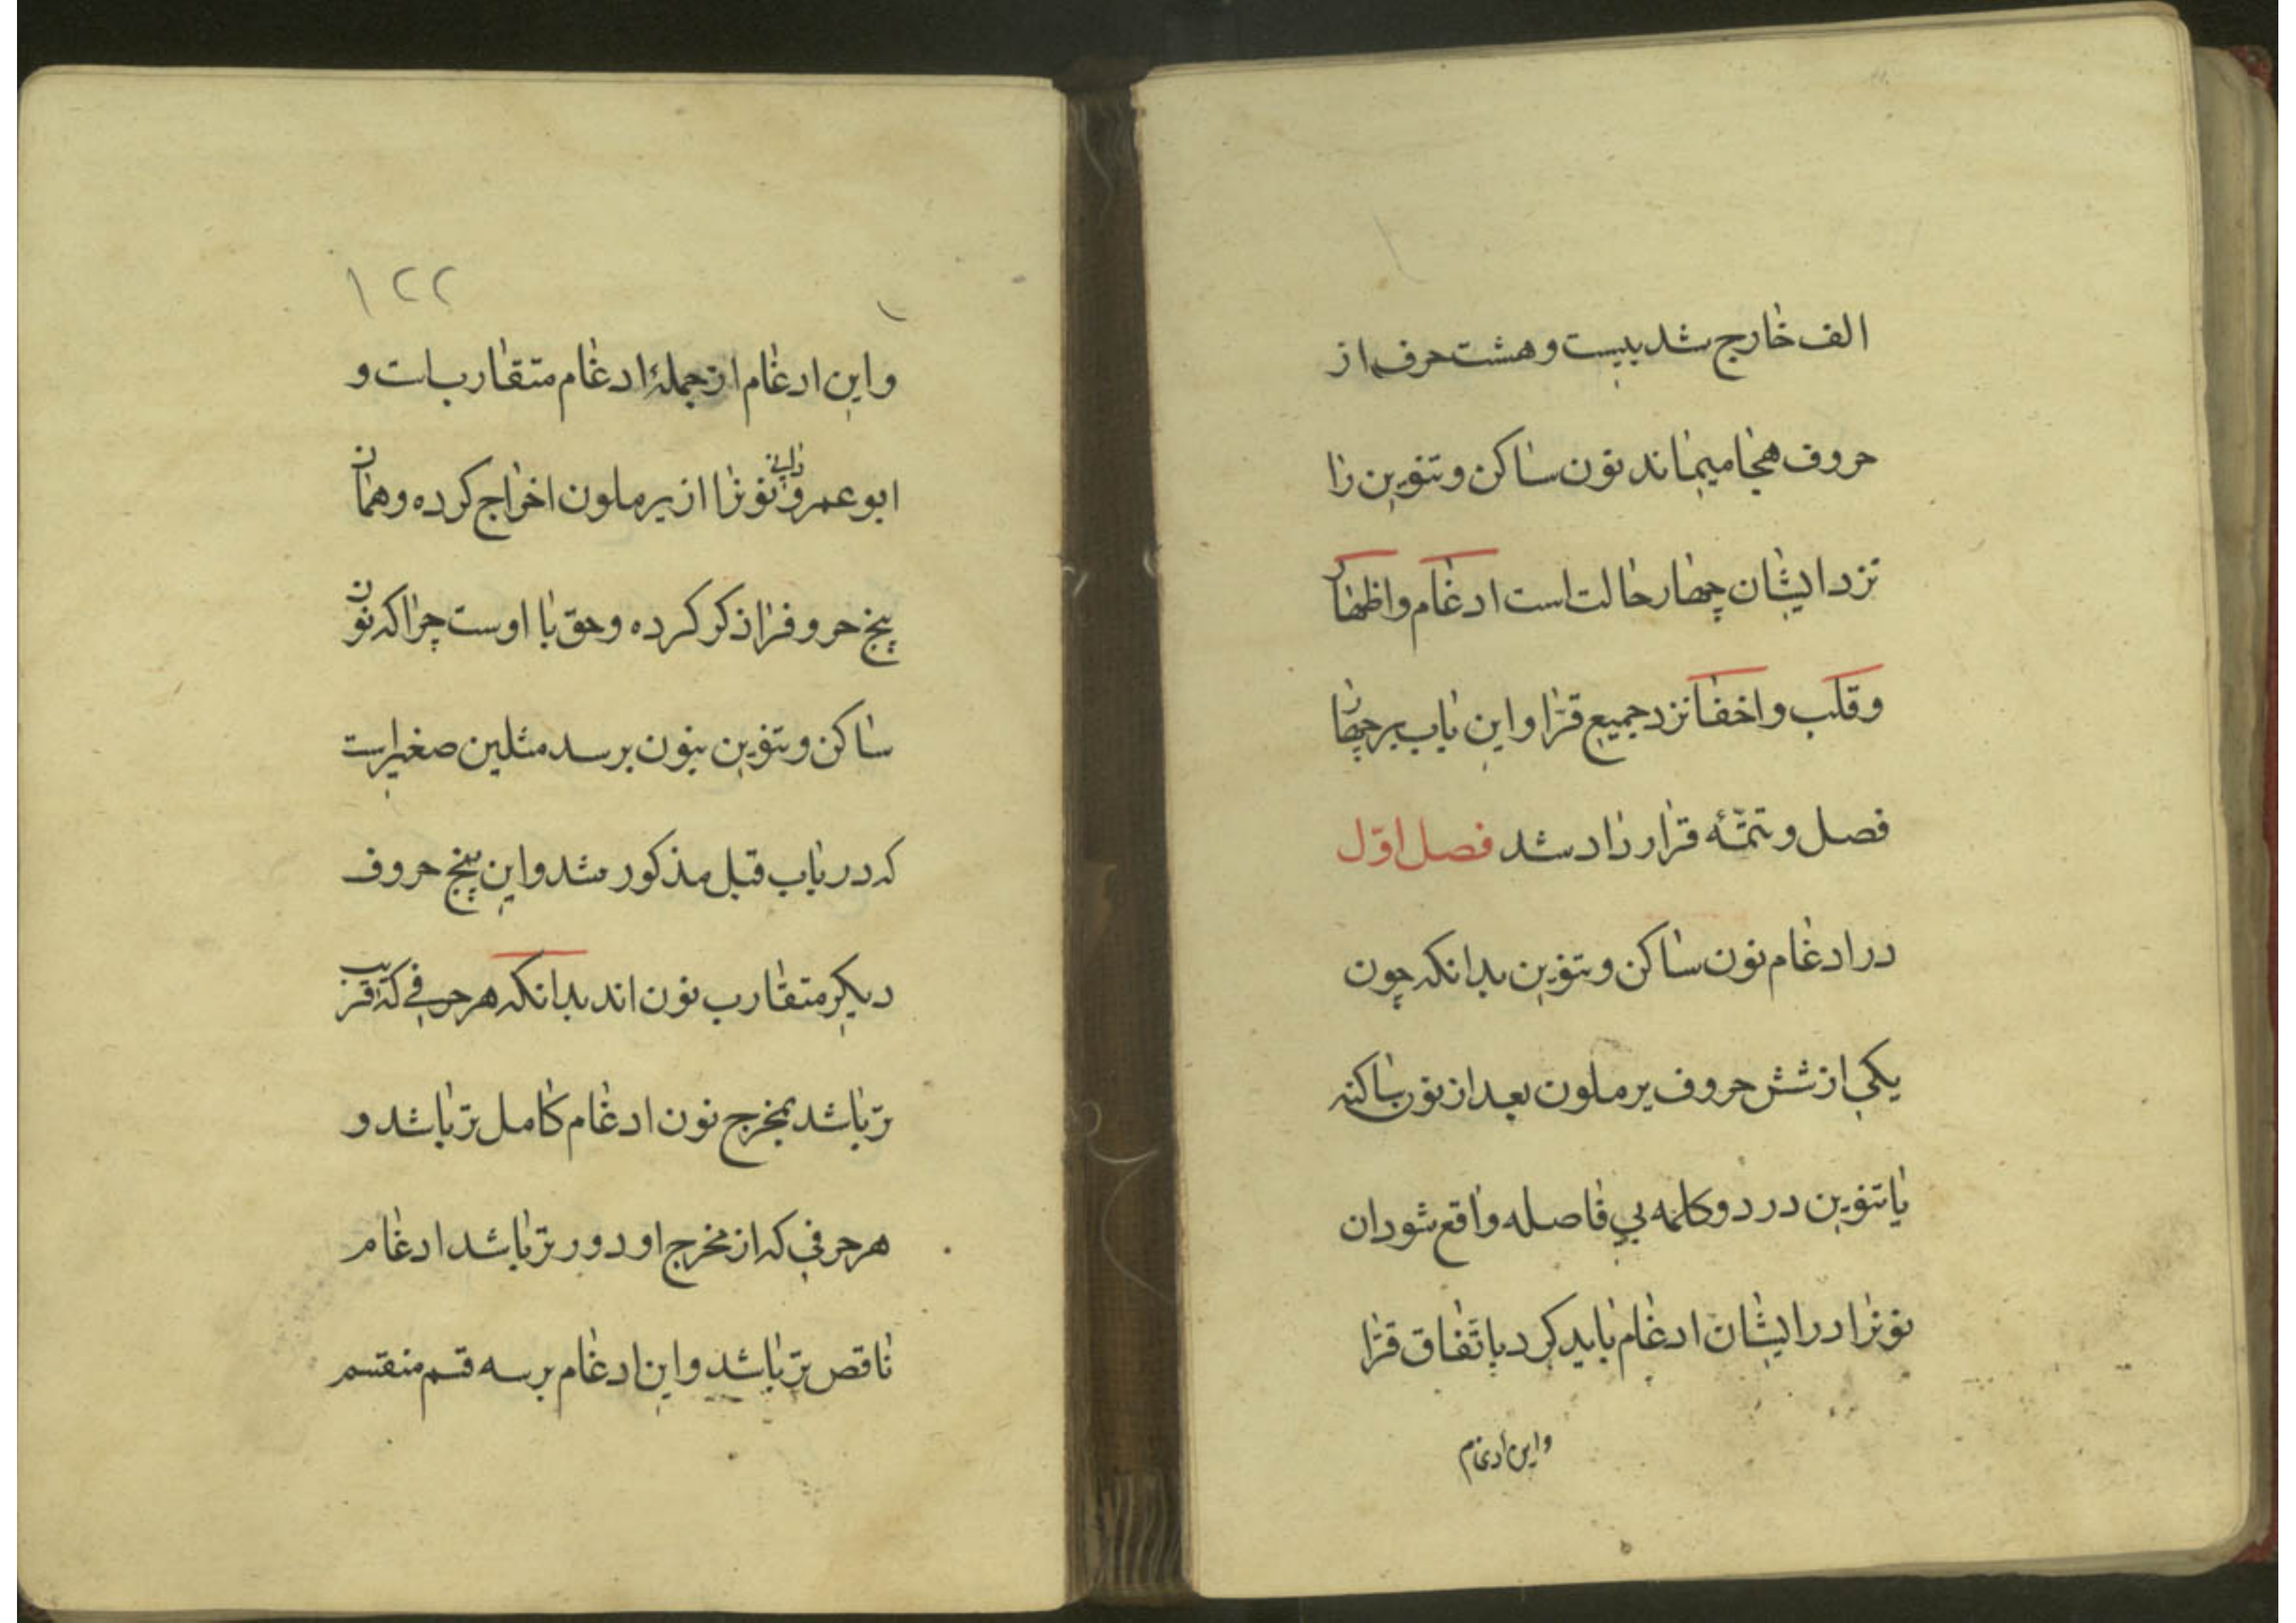 الف خارج شد بیست و هشت حرف از
حروف هجا میماند نون ساکن و تنوین را
نزد ایشان چهار حالت است ادغام و اظهار
و قلب و اخفا نزد جمیع قرّا و این باب بر چهار
فصل و تتمّه قرار داد شد فصل اوّل
در ادغام نون ساکن و تنوین بدانکه چون
یکی از شش حروف یرملون بعد از نون ساکنه
یا تنوین در دو کلمه بی فاصله واقع شود ان
نونرا در ایشان ادغام باید کرد باتّفاق قرّا
و این ادغام
۱۲۲
و این ادغام از جملهٔ ادغام متقاربات و
ابو عمرو دانی نونرا از یرملون اخراج کرده و همان
پنج حروفرا ذکر کرده و حق با اوست چرا که نون
ساکن و تنوین بنون برسد مثلین صغیر است
که در باب قبل مذکور شد و این پنج حروف
دیگر متقارب نون اند بدانکه هر حرفی که قریب
تر باشد بمخرج نون ادغام کامل تر باشد و
هر حرفی که از مخرج او دور تر باشد ادغام
ناقص تر باشد و این ادغام بر سه قسم منقسم